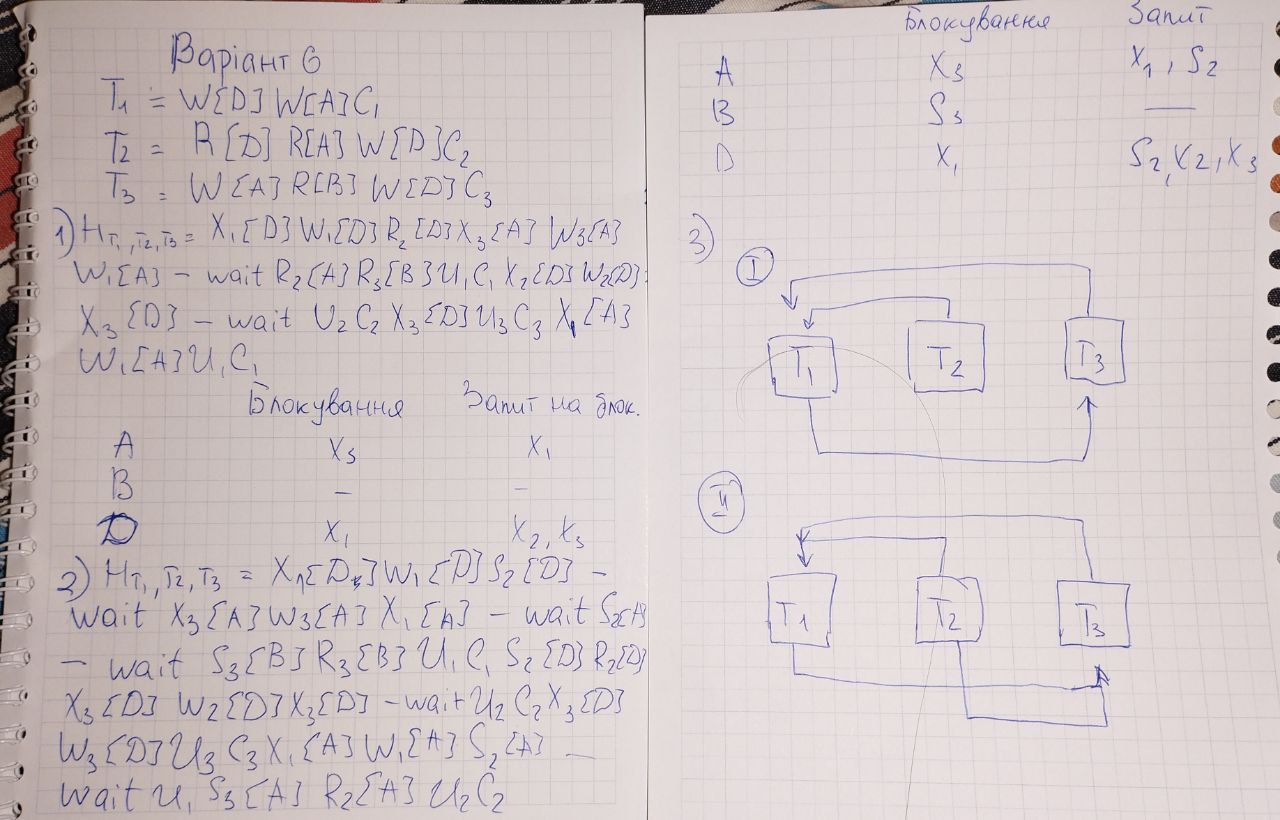 Варіант 6
T₁ = W[D] W[A] C₁
T₂ = R[D] R[A] W[D] C₂
T₃ = W[A] R[B] W[D] C₃
1) H T₁,T₂,T₃ = X₁[D] W₁[D] R₂[D] X₃[A] W₃[A]
W₁[A] – wait R₂[A] R₃[B] U₁ C₁ X₂[D] W₂[D]
X₃[D] – wait U₂ C₂ X₃[D] U₃ C₃ X₁[A]
W₁[A] U₁ C₁
Блокування Запит на блок.
A X₃ X₁
B – –
D X₁ X₂, X₃
2) H T₁,T₂,T₃ = X₁[D] W₁[D] S₂[D] –
wait X₃[A] W₃[A] X₁[A] – wait S₂[A]
– wait S₃[B] R₃[B] U₁ C₁ S₂[D] R₂[D]
X₃[D] W₂[D] X₃[D] – wait U₂ C₂ X₃[D]
W₃[D] U₃ C₃ X₁[A] W₁[A] S₂[A] –
wait U₁ S₃[A] R₂[A] U₂ C₂
Блокування Запит
A X₃ X₁, S₂
B S₃ —
D X₁ S₂, X₂, X₃
3)
I
T₁ T₂ T₃
II
T₁ T₂ T₃